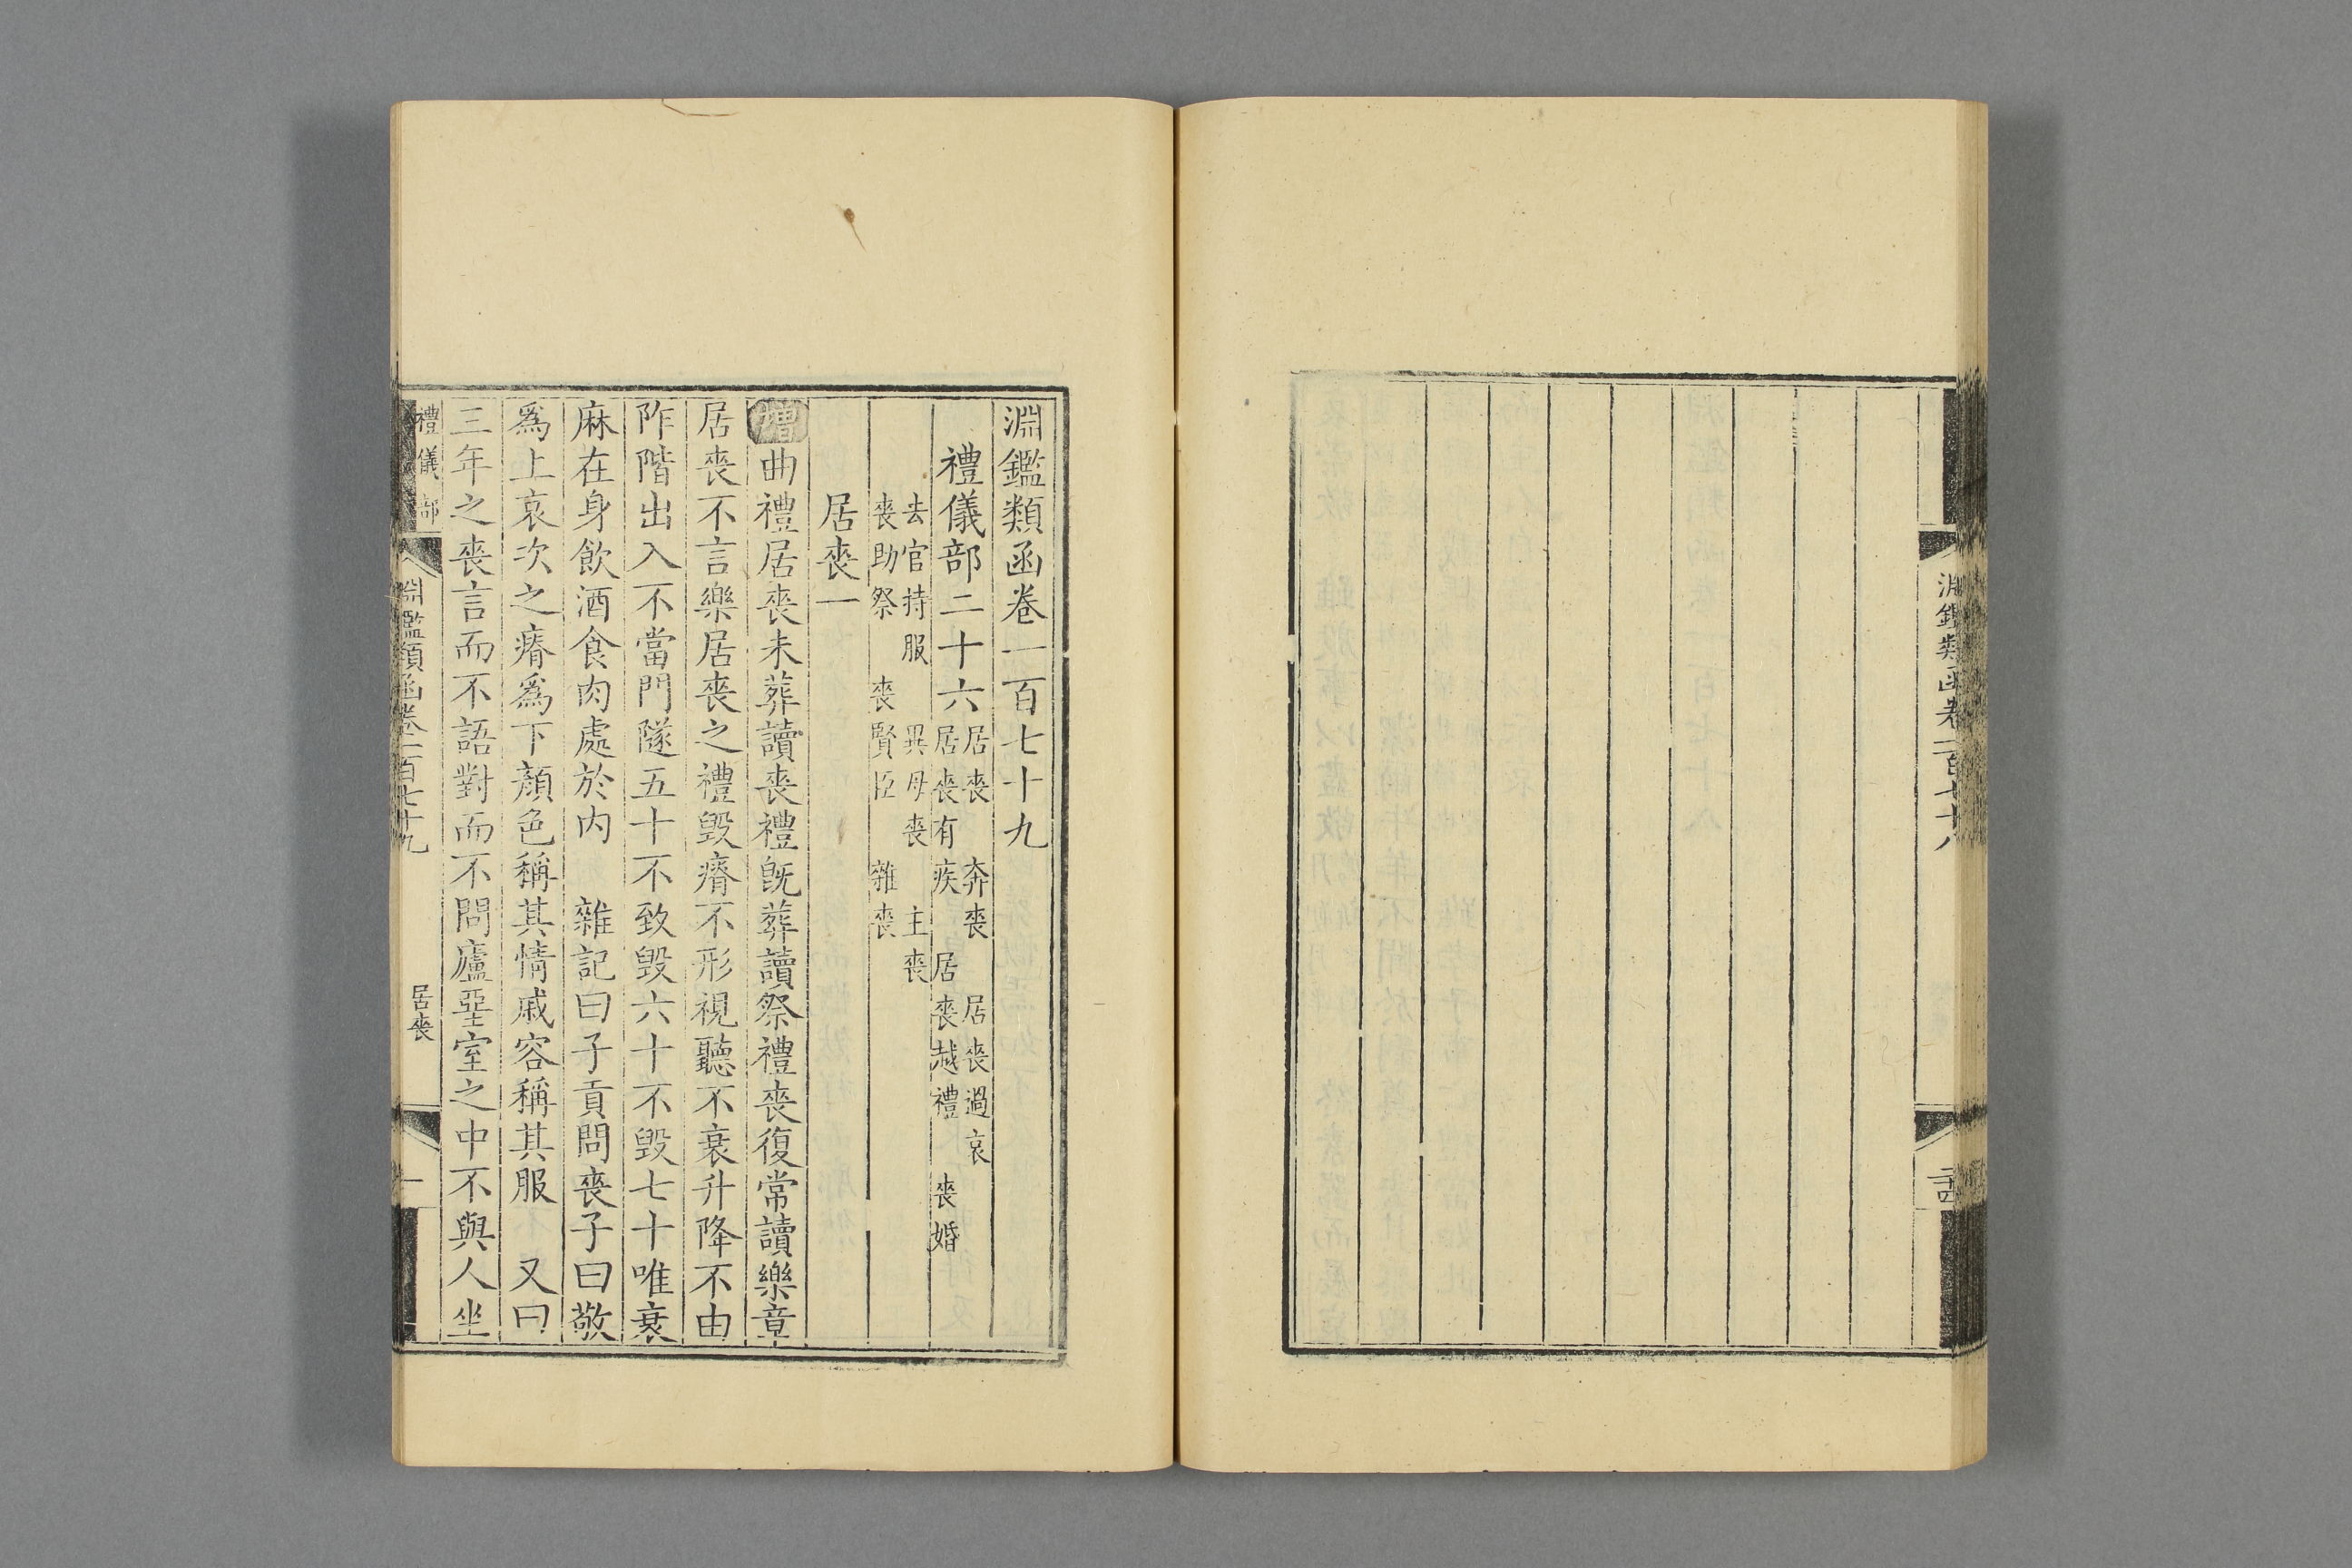 淵鑑類函卷一百七十八
二十四
淵鑑類函卷一百七十九
禮儀部二十六 居喪 奔喪 居喪過哀
居喪有疾 居喪越禮 喪婚
去官持服 異母喪 主喪
喪助祭 喪賢臣 雜喪
居喪一
增曲禮居喪未葬讀喪禮旣葬讀祭禮喪復常讀樂章
居喪不言樂居喪之禮毀瘠不形視聽不衰升降不由
阼階出入不當門隧五十不致毀六十不毀七十唯衰
麻在身飲酒食肉處於内 雜記曰子貢問喪子曰敬
爲上哀次之瘠爲下顏色稱其情戚容稱其服 又曰
三年之喪言而不語對而不問廬堊室之中不與人坐
禮儀部 淵鑑類函卷一百七十九 居喪 一